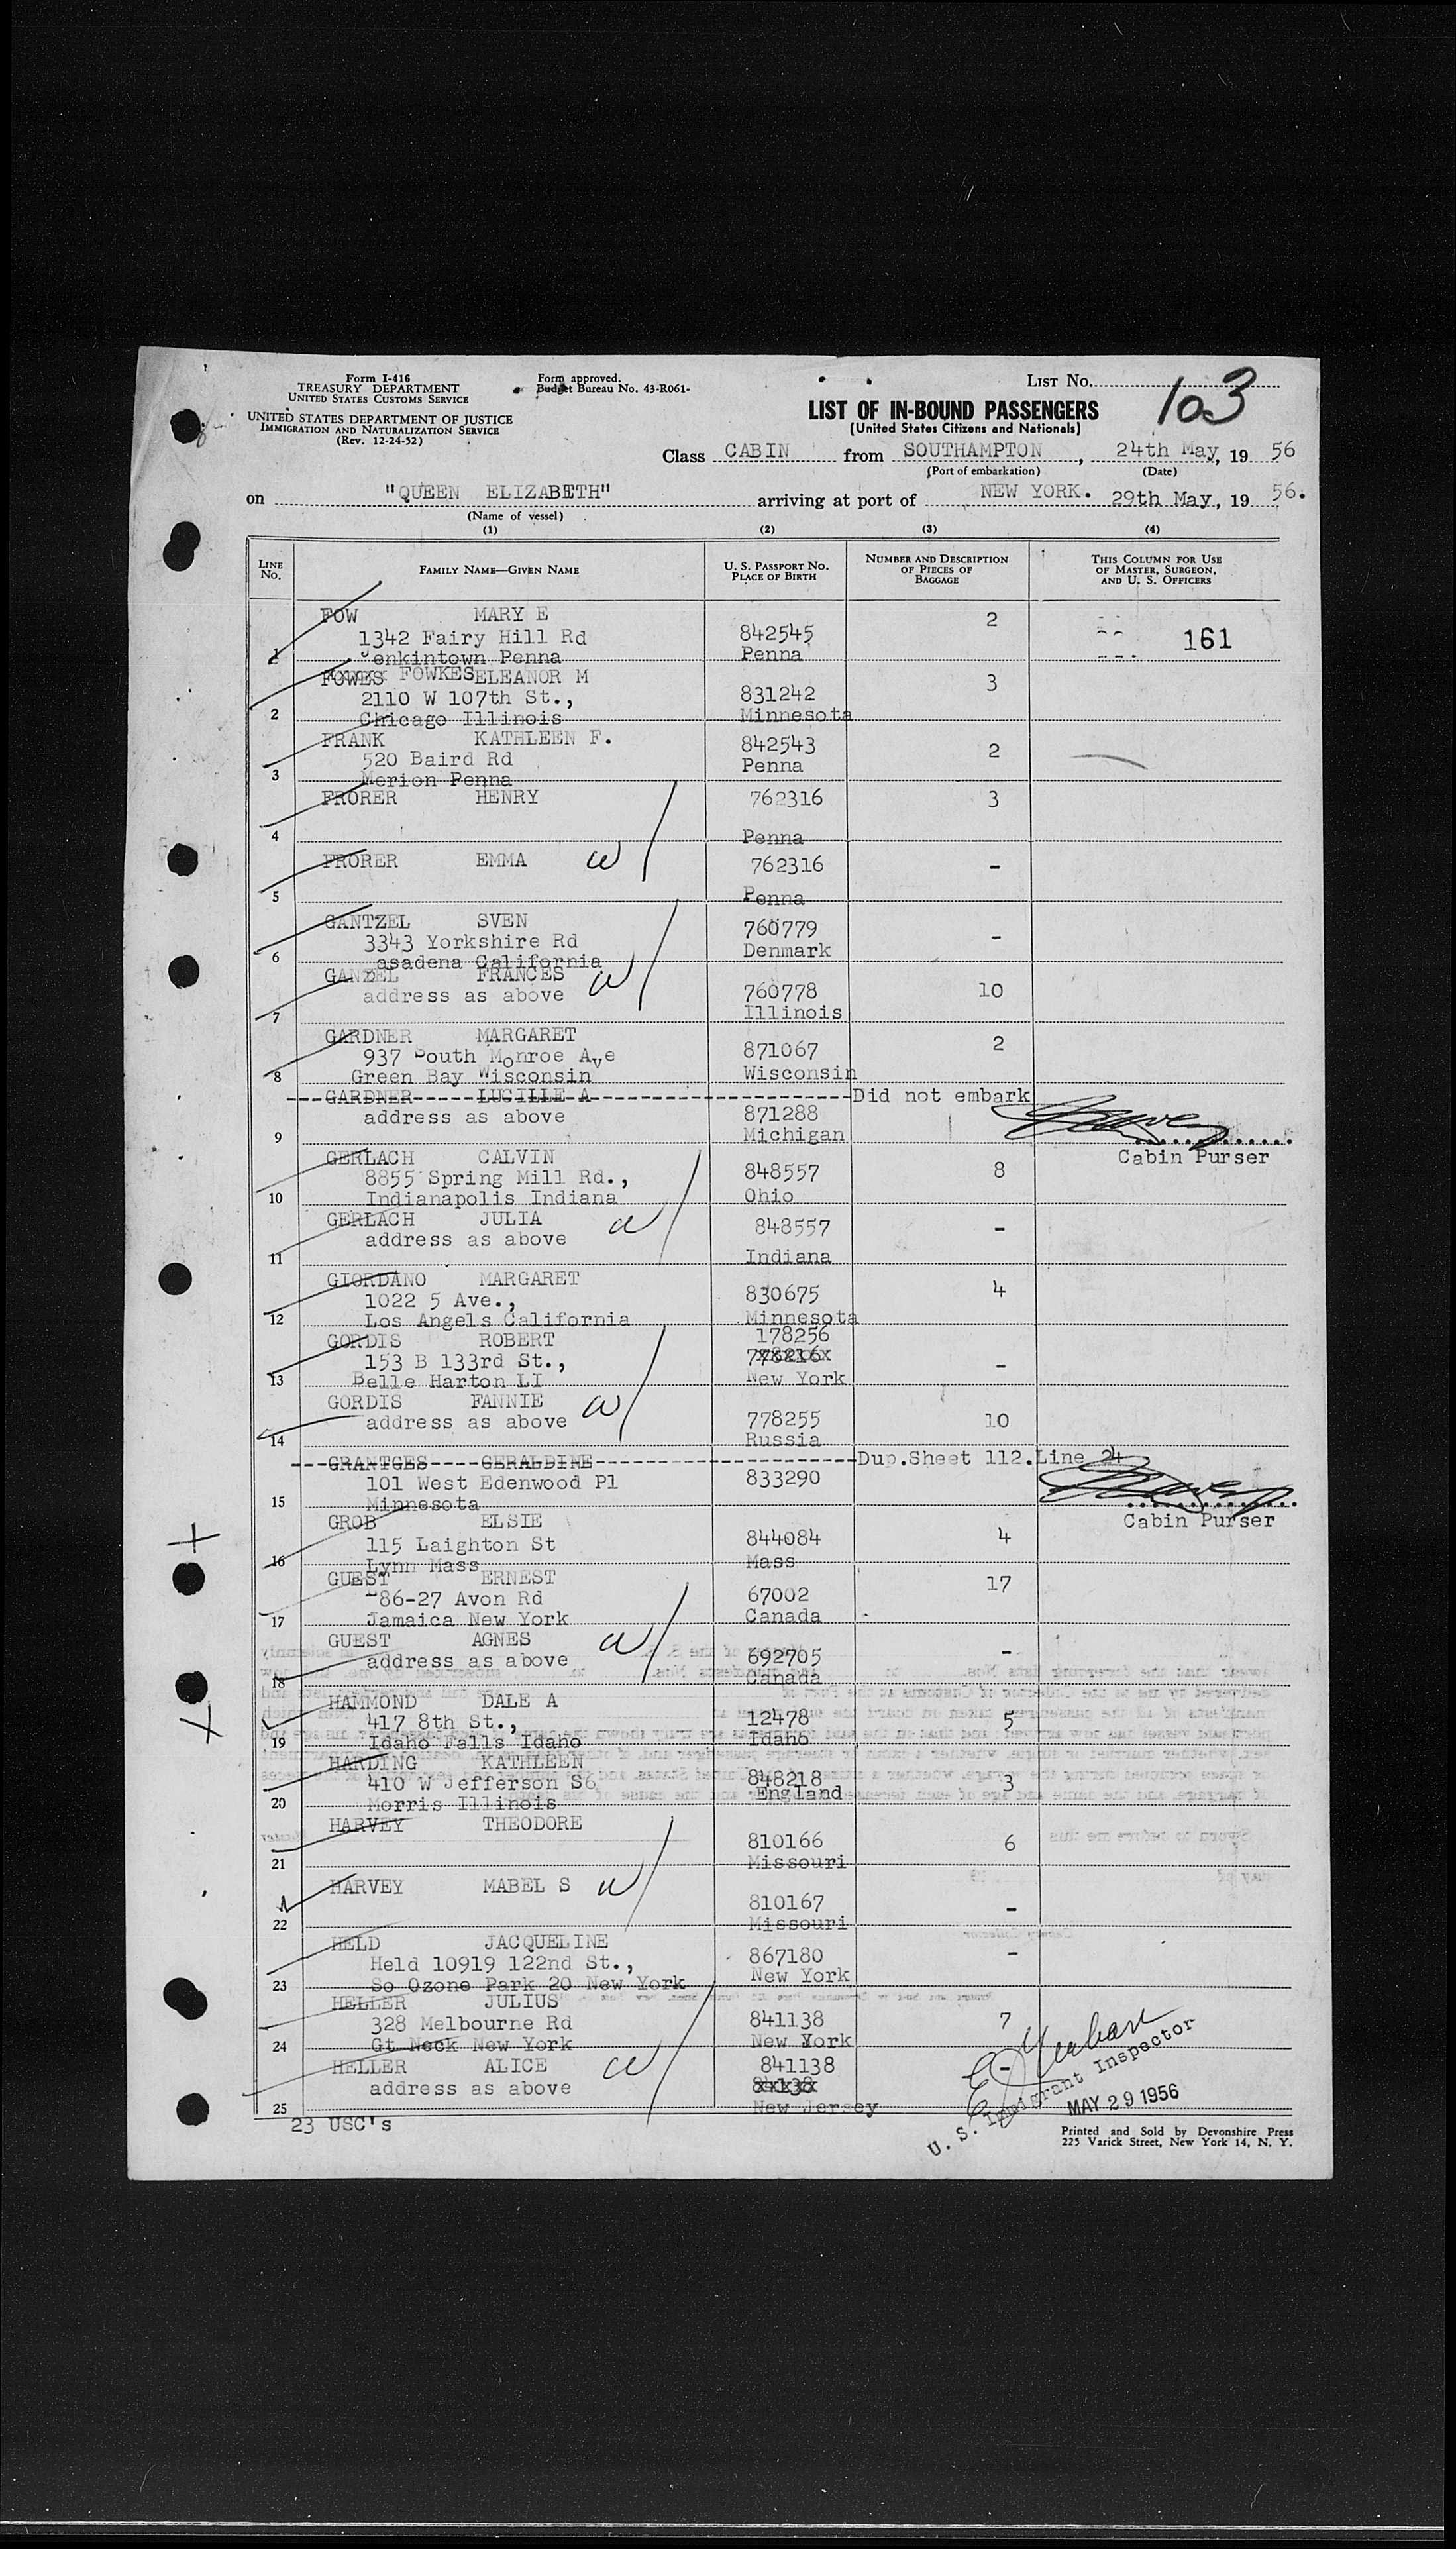 Form I-416
TREASURY DEPARTMENT
UNITED STATES CUSTOMS SERVICE
UNITED STATES DEPARTMENT OF JUSTICE
IMMIGRATION AND NATURALIZATION SERVICE
(Rev. 12-24-52)
Form approved.
Budget Bureau No. 43-R061-
LIST NO. 103
LIST OF IN-BOUND PASSENGERS
(United States Citizens and Nationals)
Class CABIN from SOUTHAMPTON, 24th May, 19 56
(Port of embarkation) (Date)
on "QUEEN ELIZABETH" arriving at port of NEW YORK. 29th May, 19 56.
(Name of vessel)
(1) (2) (3) (4)
LINE NO. FAMILY NAME—GIVEN NAME U. S. PASSPORT NO. PLACE OF BIRTH NUMBER AND DESCRIPTION OF PIECES OF BAGGAGE THIS COLUMN FOR USE OF MASTER, SURGEON, AND U. S. OFFICERS
FOW MARY E 2
1342 Fairy Hill Rd 842545 161
1 Jenkintown Penna Penna
FOWES FOWKES ELEANOR M 3
2110 W 107th St., 831242
2 Chicago Illinois Minnesota
FRANK KATHLEEN F. 842543
520 Baird Rd Penna 2
3 Merion Penna
FRORER HENRY 762316 3
4 Penna
FRORER EMMA W 762316 -
5 Penna
GANTZEL SVEN 760779
3343 Yorkshire Rd Denmark -
6 asadena California
GANZEL FRANCES W
address as above 760778 10
7 Illinois
GARDNER MARGARET 871067 2
937 South Monroe Ave
8 Green Bay Wisconsin Wisconsin
GARDNER LUCILLE A Did not embark
address as above 871288
9 Michigan
Cabin Purser
GERLACH CALVIN 848557 8
8855 Spring Mill Rd.,
10 Indianapolis Indiana Ohio
GERLACH JULIA W 848557 -
address as above
11 Indiana
GIORDANO MARGARET 4
1022 5 Ave., 830675
12 Los Angels California Minnesota
GORDIS ROBERT 178256
153 B 133rd St., 778216x -
13 Belle Harton LI New York
GORDIS FANNIE W
address as above 778255 10
14 Russia
GRANTGES GERALDINE Dup.Sheet 112.Line 24
101 West Edenwood Pl 833290
15 Minnesota
Cabin Purser
GROB ELSIE
115 Laighton St 844084 4
16 Lynn Mass Mass
GUEST ERNEST 17
86-27 Avon Rd 67002
17 Jamaica New York Canada
GUEST AGNES W
address as above 692705 -
18 Canada
HAMMOND DALE A
417 8th St., 12478 5
19 Idaho Falls Idaho Idaho
HARDING KATHLEEN
410 W Jefferson S6 848218 3
20 Morris Illinois England
HARVEY THEODORE
810166 6
21 Missouri
HARVEY MABEL S W
810167 -
22 Missouri
HELD JACQUELINE
Held 10919 122nd St., 867180 -
23 So Ozone Park 20 New York New York
HELLER JULIUS
328 Melbourne Rd 841138 7
24 Gt Neck New York New York
HELLER ALICE W 841138 -
address as above
25 New Jersey
23 USC's
U. S. Immigrant Inspector
MAY 29 1956
Printed and Sold by Devonshire Press
225 Varick Street, New York 14, N. Y.